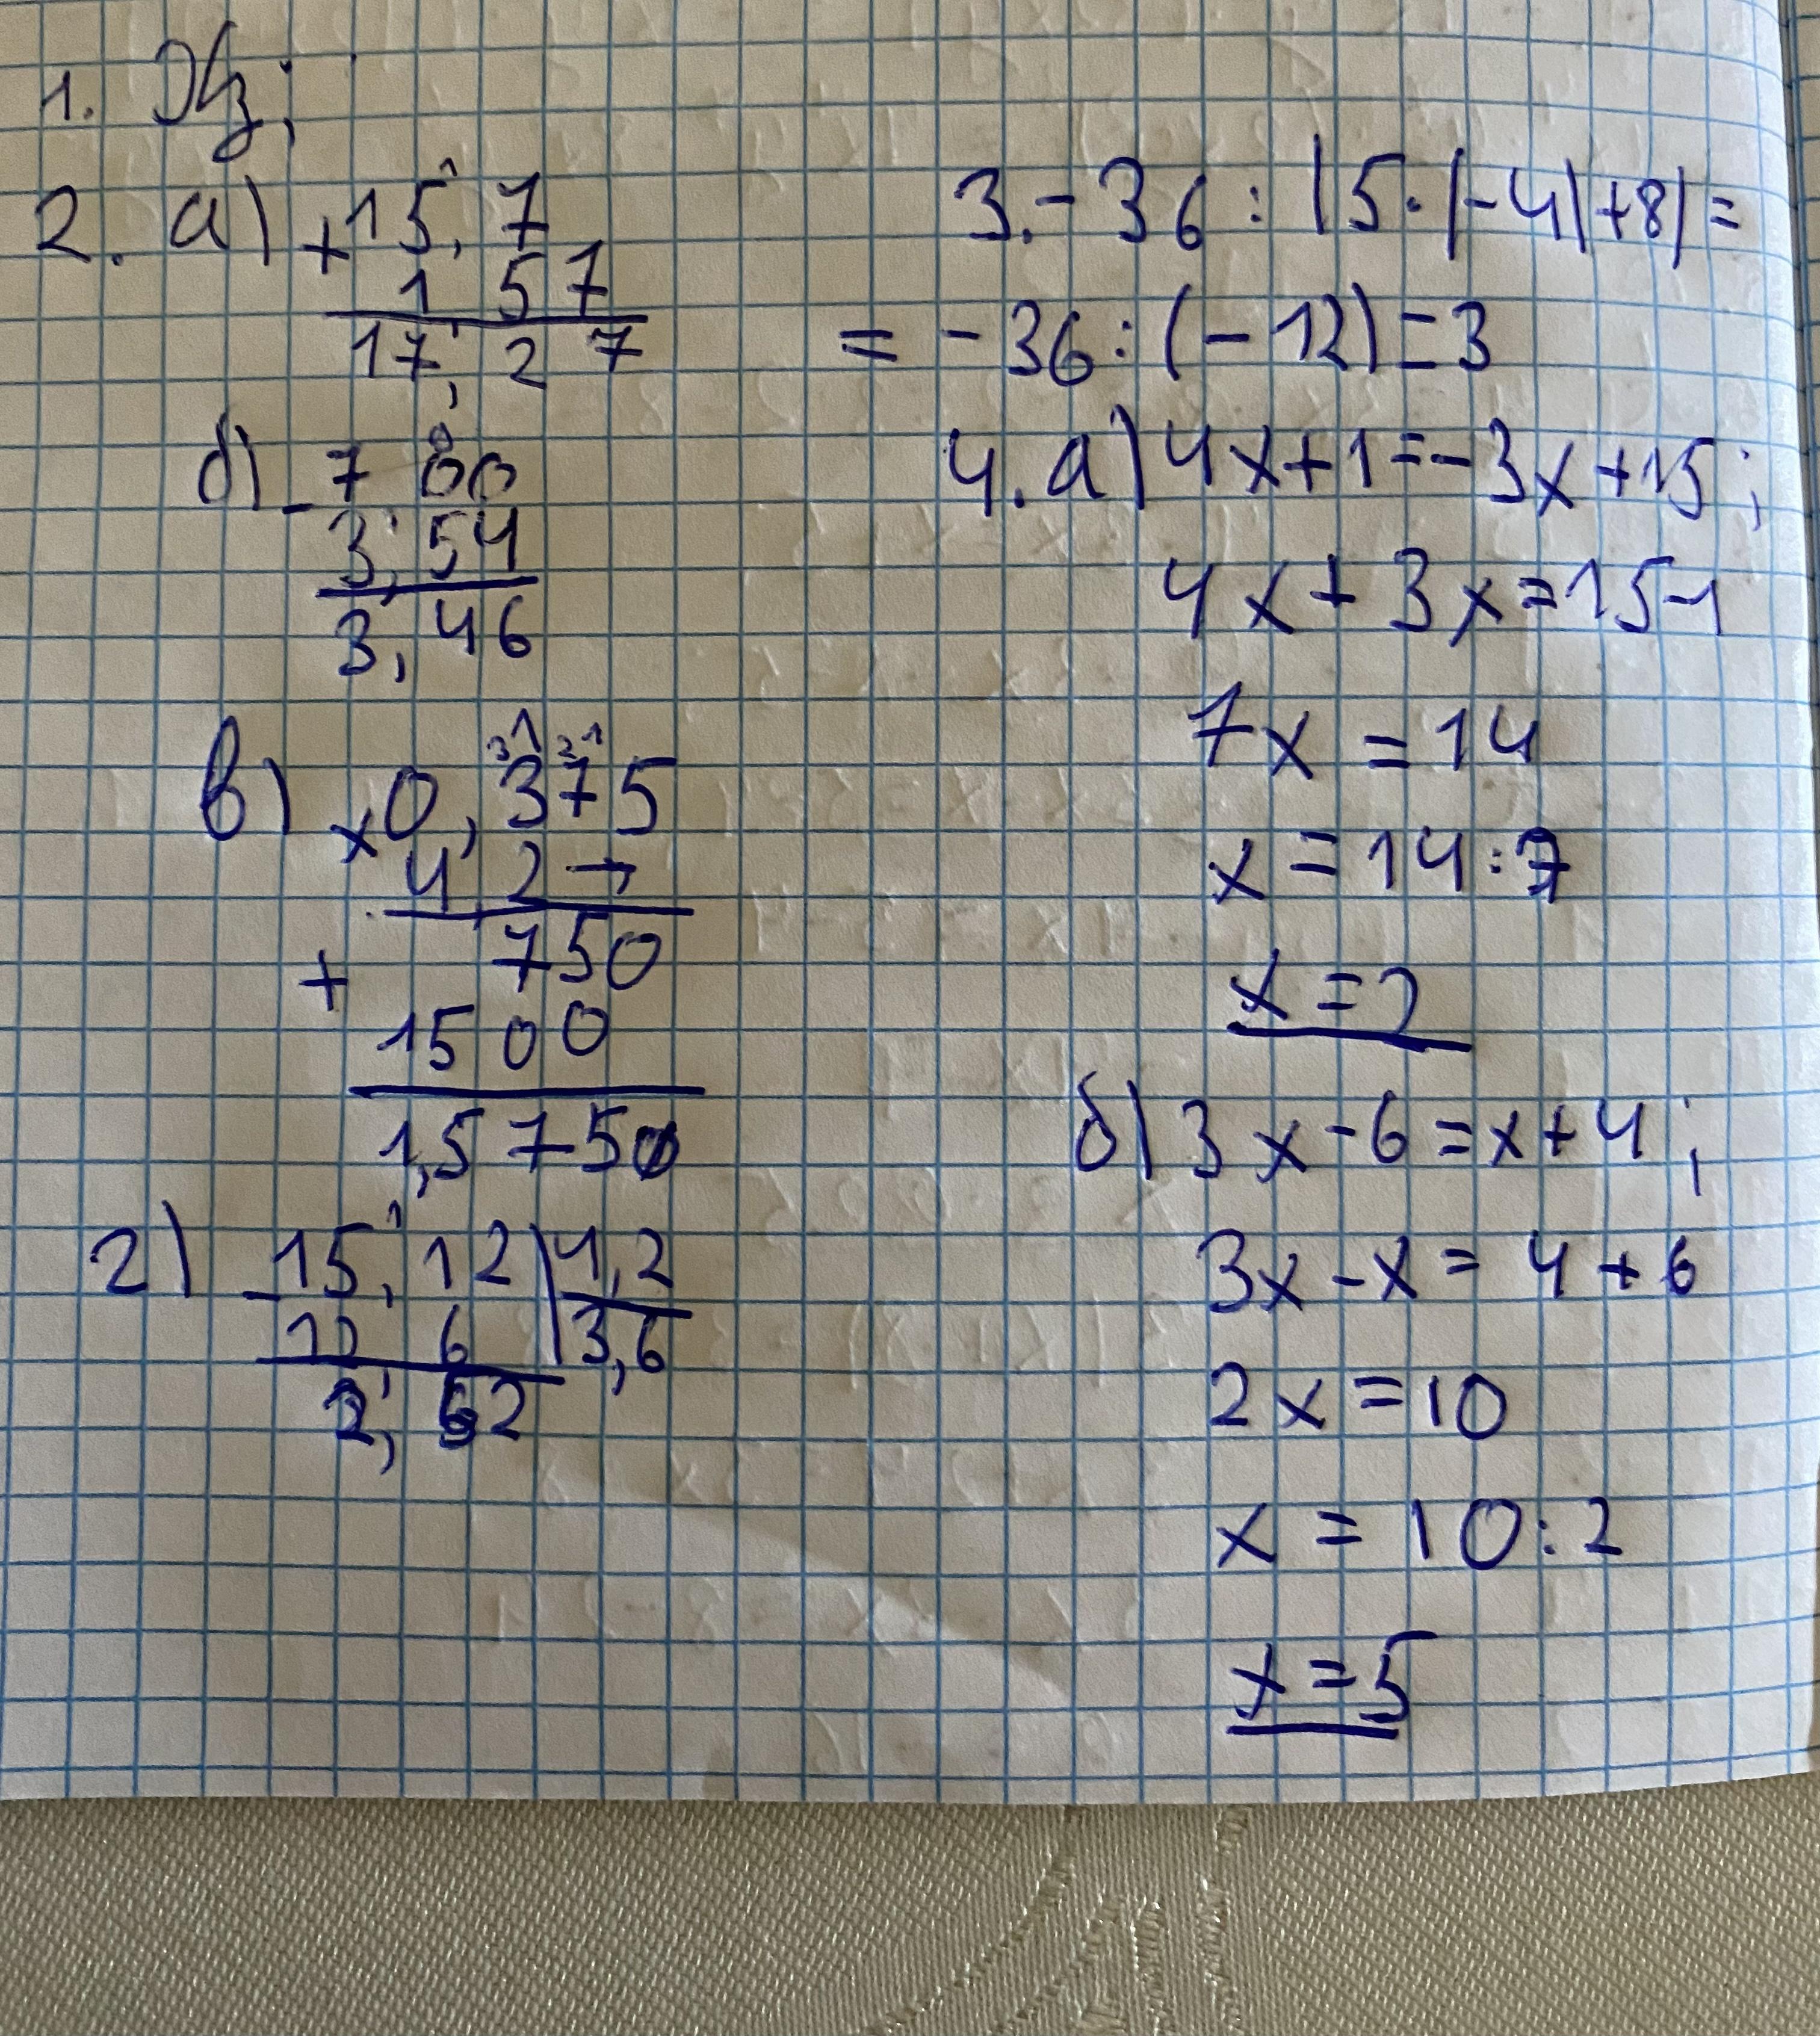 1.
2. а) + 15,7
1,57
17,27
б) - 7,00
3,54
3,46
в) x 0,375
4,2 →
+ 750
1500
1,5750
г) - 15,12 | 4,2
12,6 | 3,6
2,52
3. -36 : (5·(-4)+8) =
= -36 : (-12) = 3
4. а) 4x+1=-3x+15;
4x+3x=15-1
7x=14
x=14:7
x=2
б) 3x-6=x+4;
3x-x=4+6
2x=10
x=10:2
x=5